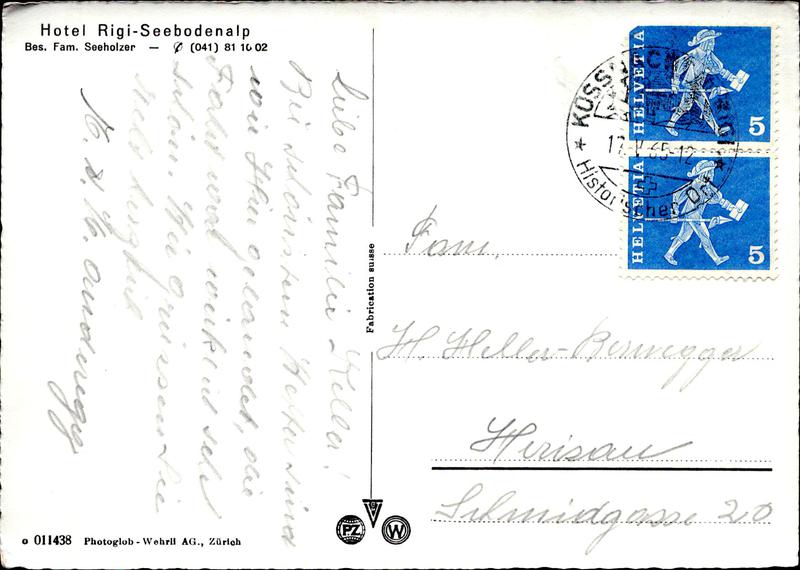 Hotel Rigi-Seebodenalp
Bes. Fam. Seeholzer — ✆ (041) 81 10 02
Liebe Familie Heller!
Bei schönstem Wetter sind
wir hier gelandet, die
Fahrt war wirklich sehr
schön. Wir grüssen Sie
alle herzlich
Fabrication suisse
HELVETIA 5
HELVETIA 5
KÜSSNACHT RIGI
17.V.65-12
Historischer Ort
Fam.
H. Heller-Bernegger
Herisau
Schmidgasse 20
PZ
W
o 011438 Photoglob-Wehrli AG., Zürich